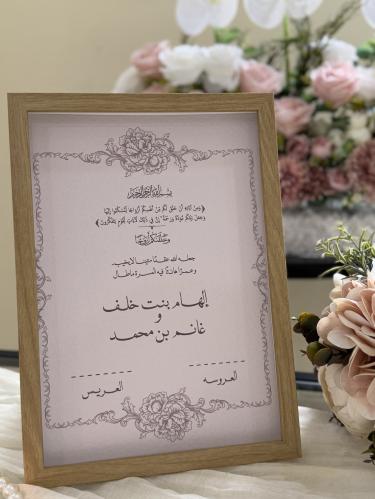 بسم الله الرحمن الرحيم
﴿ومن آياته أن خلق لكم من أنفسكم أزواجا لتسكنوا إليها
وجعل بينكم مودة ورحمة إن في ذلك لآيات لقوم يتفكرون﴾
وخلقناكم أزواجا
جعله الله عقدًا متينا لا يخيب
وعمرًا هانئًا فيه المسرة ماطال
إلهام بنت خلف
و
غانم بن محمد
العروسه
العريس